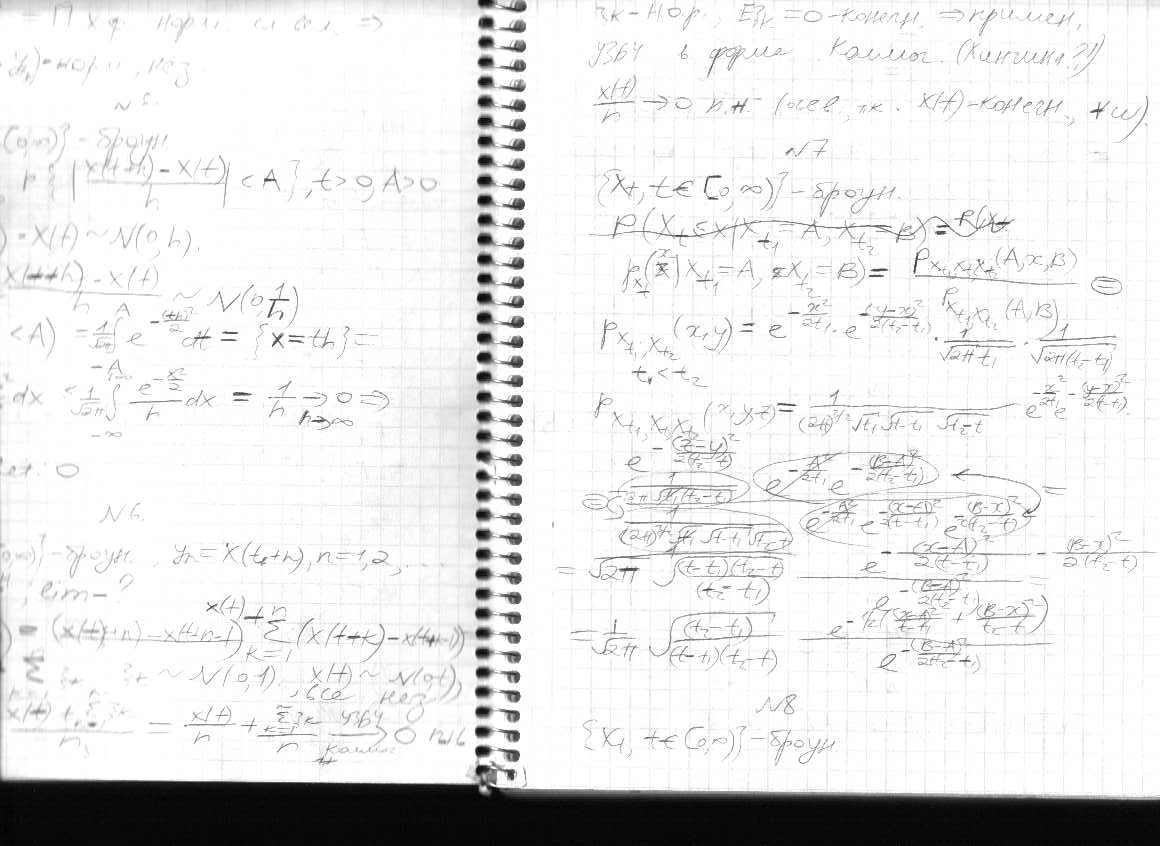 = П х.ф. норм. сл. вел. ⇒
- норм., нез.
N5.
[0,∞)} - броун
P{ |(X(t+h) - X(t))/h| < A }, t>0, A>0
) - X(t) ~ N(0,h).
(X(t+h) - X(t))/h ~ N(0, 1/h)
< A) = 1/√2π ∫_{-A}^{A} e^{-(th)²/2} dt = {x = th} =
dx ≤ 1/√2π ∫_{-∞}^{∞} e^{-x²/2}/h dx = 1/h → 0 ⇒
h→∞
: 0
N6.
[0,∞)} - броун, yn = X(t+n), n=1,2,
, lim - ?
) = (X(t+n) - X(t+n-1)) X(t) + Σ_{k=1}^{n} (X(t+k) - X(t+k-1))
~ N(0,1), X(t) ~ N(0,t),
все нез.
= X(t)/n + Σ_{k=1}^{n} ξk / n → 0 п.н.
УЗБЧ
ξk - нор., Eξk = 0 - конечн. ⇒ примен.
УЗБЧ в форме Колмог. (Хинчина?!)
X(t)/n → 0 п.н. (очев., т.к. X(t) - конечн., ∀ω).
N7
{Xt, t∈[0,∞)} - броун.
P(Xt ≤ x | Xt1 = A, Xt2 = B) = P(Xt
pXt(x | Xt1 = A, Xt2 = B) = pXt1,Xt,Xt2(A,x,B) / pXt1,Xt2(A,B) =
pXt1,Xt2(x,y) = e^{-x²/2t1} · e^{-(y-x)²/2(t2-t1)} · 1/√(2πt1) · 1/√(2π(t2-t1))
t1 < t2
pXt1,Xt,Xt2(x,y,z) = 1/((2π)^{3/2} √t1 √(t-t1) √(t2-t)) e^{-x²/2t1} e^{-(y-x)²/2(t-t1)}
e^{-(z-y)²/2(t2-t)}
= 1/(2π√(t1(t2-t1))) e^{-A²/2t1} e^{-(B-A)²/2(t2-t1)} =
1/((2π)^{3/2} √t1 √(t-t1) √(t2-t)) e^{-A²/2t1} e^{-(x-A)²/2(t-t1)} e^{-(B-x)²/2(t2-t)}
= 1/(√2π √((t-t1)(t2-t)/(t2-t1))) e^{-(x-A)²/2(t-t1) - (B-x)²/2(t2-t)} / e^{-(B-A)²/2(t2-t1)} =
= 1/√2π √((t2-t1)/((t-t1)(t2-t))) e^{-1/2((x-A)²/(t-t1) + (B-x)²/(t2-t))} / e^{-(B-A)²/2(t2-t1)}
N8
{Xt, t∈[0,∞)} - броун